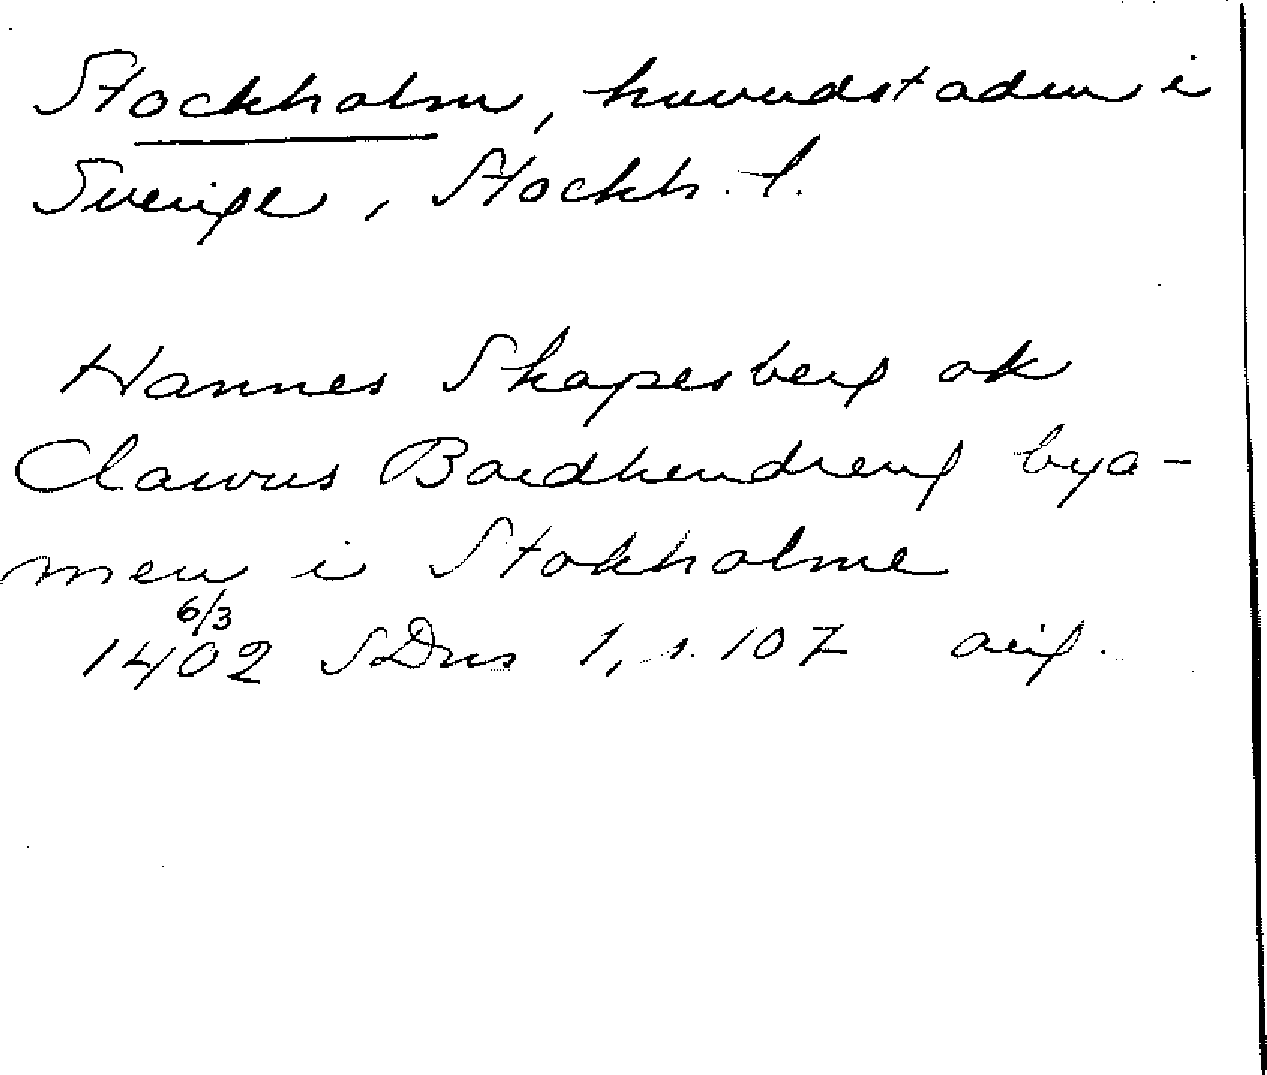 Stockholm, huvudstaden i
Sverige, Stockh. l.
Hannes Skapesberg ok
Clawus Bordhendreng bya-
men i Stokholme
6/3
1402 SDns 1, s. 107 orig.